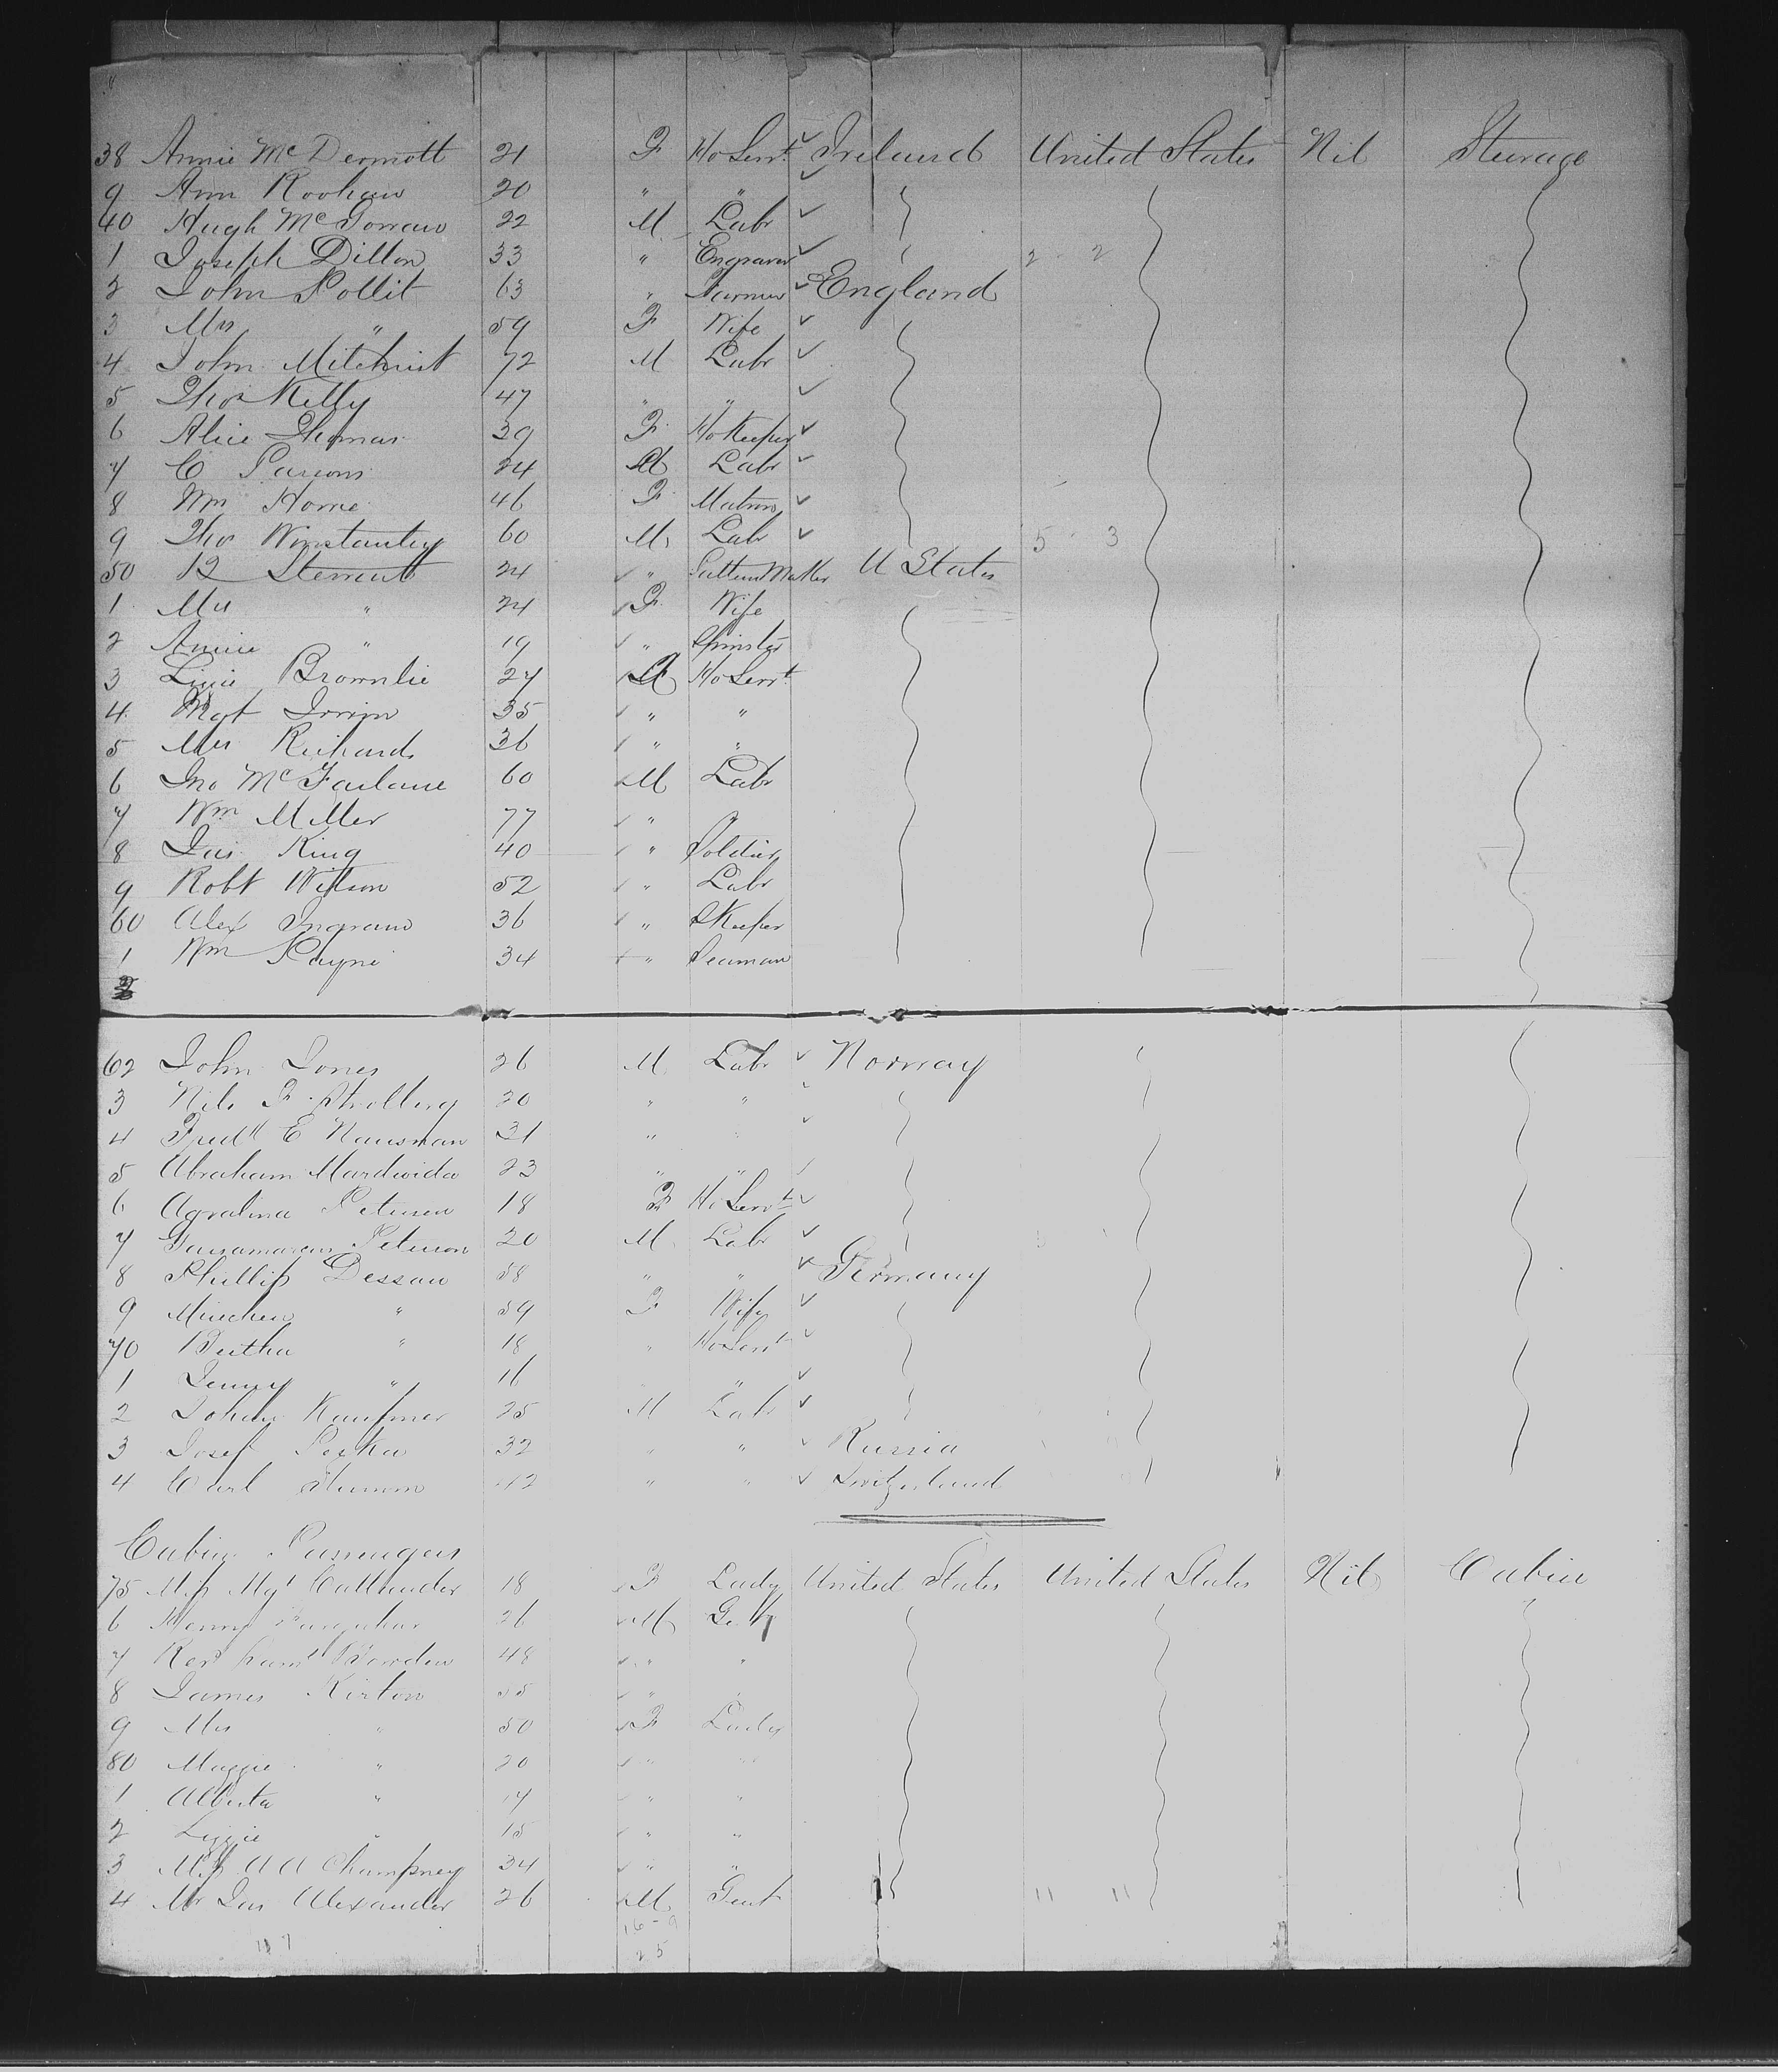 38 Annie McDermott 21 F Ho Servt ✓ Ireland United States Nil Steerage
9 Ann Roohan 20 " " ✓
40 Hugh McGorran 22 M Labr ✓
1 Joseph Dillon 33 " Engraver ✓ 2 - 2
2 John Pollit 63 " Farmer ✓ England
3 Mrs " 59 F Wife ✓
4 John Mitchist 72 M Labr ✓
5 Thos Kelly 47 " " ✓
6 Alice Thomas 39 F Ho Keeper ✓
7 C Parsons 24 M Labr ✓
8 Wm Horne 46 F Matron ✓
9 Thos Winstanley 60 M Labr ✓ 5 - 3
50 R Sterrett 24 ✓ " Pattern Maker U States
1 Mrs " 24 ✓ F Wife
2 Annie " 19 ✓ " Spinster
3 Lizzie Brownlie 27 ✓ Ho Servt
4 Mgt Irwin 35 ✓ " "
5 Mrs Richards 36 ✓ " "
6 Jno McFarlane 60 ✓ M Labr
7 Wm Miller 77 ✓ " "
8 Jas King 40 ✓ " Soldier
9 Robt Wilson 52 ✓ " Labr
60 Alex Ingram 36 ✓ " SKeeper
1 Wm Payne 34 " Seaman
62 John Jones 26 M Labr ✓ Norway
3 Nils F 20 " " ✓
4 Fredk E Nausman 31 " " ✓
5 Abraham Mardwida 23 " " ✓
6 Petersen 18 F Ho Servt ✓
7 Peterson 20 M Labr ✓
8 Phillip Dessau 58 " " ✓ Germany
9 Minchen " 59 F Wife ✓
70 Bertha " 18 " Ho Servt ✓
1 Jenny " 16 " ✓
2 Johan Kaufmer 25 M Labr ✓
3 Josef 32 " " ✓ Russia
4 Carl 42 " " ✓ Switzerland
Cabin Passengers
75 Miss Mgt Callender 18 ✓ F Lady United States United States Nil Cabin
6 Henry Farquhar 26 ✓ M
7 Revd Bowden 48 ✓ " "
8 James Kirton ✓ "
9 Mrs " 50 ✓ F Lady
80 Maggie " 20 ✓ " "
1 Alberta " 17 ✓ " "
2 Lizzie " 15 ✓ " "
3 Miss A A Champney 34 ✓ " "
4 Mr Jas Alexander 26 ✓ M Gent 11 11
16 - 9
25